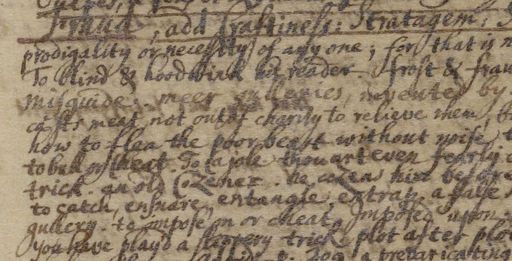 Fraud, add Craftiness: Stratagem;
prodigality or necessity of any one; for that is
To blind & hoodwink his reader frost & frau
misguide. meer gulleries, invented by
casts meat not out of charity to relieve them,
how to flaa the poor beast without noise,
to bub or cheat. To cajole thou art even fearly
trick. an old Cozener. he cozens him before
to catch, ensnare, entangle, entrap,
gullery. to impose on or cheat. Imposed upon.
You have play'd a slippery trick plot after plot
a prevaricating